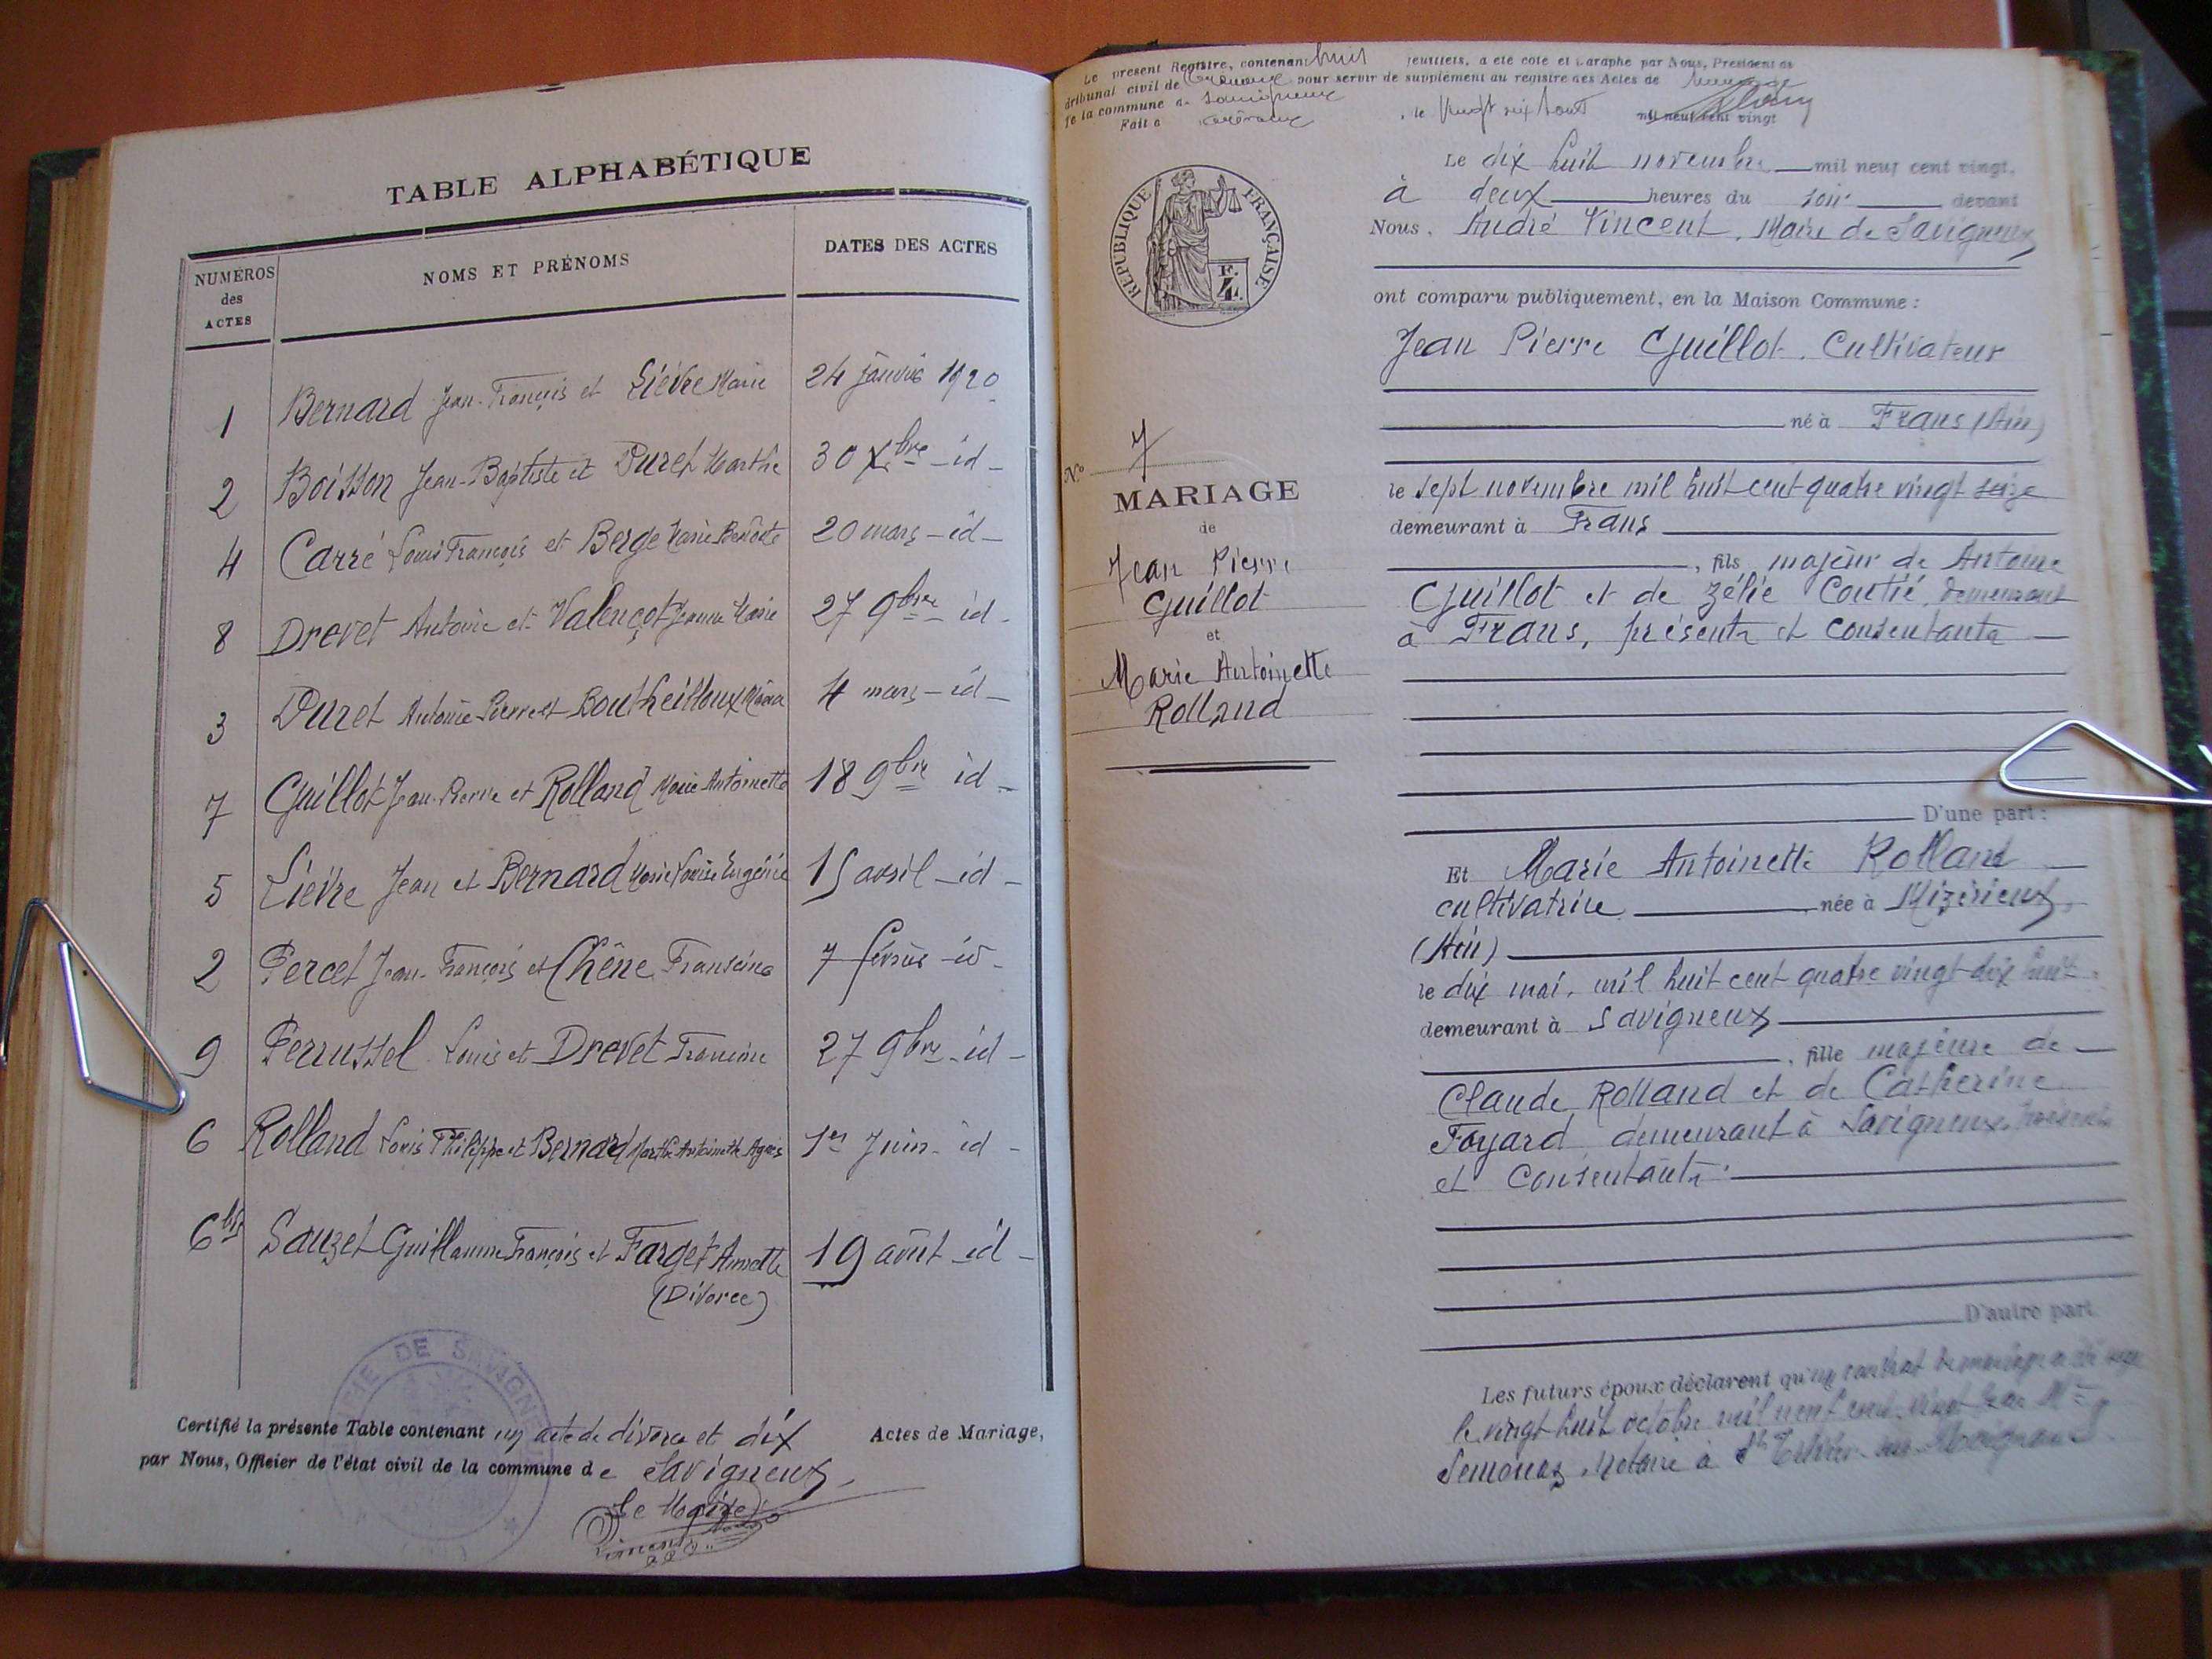 TABLE ALPHABÉTIQUE
NUMÉROS des ACTES
NOMS ET PRÉNOMS
DATES DES ACTES
1 Bernard Jean-François et Lièvre Marie 24 janvier 1920
2 Boisson Jean-Baptiste et Duret Marthe 30 Xbre - id -
4 Carré Louis François et Berge Marie Benoite 20 mars - id -
8 Drevet Antoine et Valençot Jeanne Marie 27 9bre id -
3 Duret Antoine Pierre et Boutheilloux Maria 4 mars - id -
7 Guillot Jean-Pierre et Rolland Marie Antoinette 18 9bre id -
5 Lièvre Jean et Bernard Marie Louise Eugénie 15 avril - id -
2 Percet Jean-François et Chêne Franceine 7 février - id -
9 Perrussel Louis et Drevet Francine 27 9bre - id -
6 Rolland Louis Philippe et Bernard Marthe Antoinette Agnès 1er Juin - id -
6 bis Sauzet Guillaume François et Farget Annette 19 août - id -
(Divorce)
Certifié la présente Table contenant un acte de divorce et dix Actes de Mariage,
par Nous, Officier de l'état civil de la commune de Savigneux.
Le Maire
Vincent
Le présent Registre, contenant huit feuillets, a été coté et paraphé par Nous, Président du
tribunal civil de Trévoux pour servir de supplément au registre des Actes de
de la commune de Savigneux
Fait à Trévoux, le vingt six Aout mil neuf cent vingt
RÉPUBLIQUE FRANÇAISE
F. 4.
Le dix huit novembre mil neuf cent vingt,
à deux heures du soir devant
Nous, André Vincent, Maire de Savigneux
ont comparu publiquement, en la Maison Commune :
Jean Pierre Guillot, Cultivateur
né à Frans (Ain)
le sept novembre mil huit cent quatre vingt seize
demeurant à Frans
, fils majeur de Antoine
Guillot et de Zélie Coutié, demeurant
à Frans, présents et consentants
D'une part :
N° 7
MARIAGE
de
Jean Pierre
Guillot
et
Marie Antoinette
Rolland
Et Marie Antoinette Rolland
cultivatrice, née à Mizérieux,
(Ain)
le dix mai, mil huit cent quatre vingt dix huit
demeurant à Savigneux
, fille majeure de
Claude Rolland et de Catherine
Foyard demeurant à Savigneux, présents
et consentants
D'autre part.
Les futurs époux déclarent qu'un contrat de mariage a été
le vingt huit octobre mil neuf cent vingt par Me
Semonaz, Notaire à St